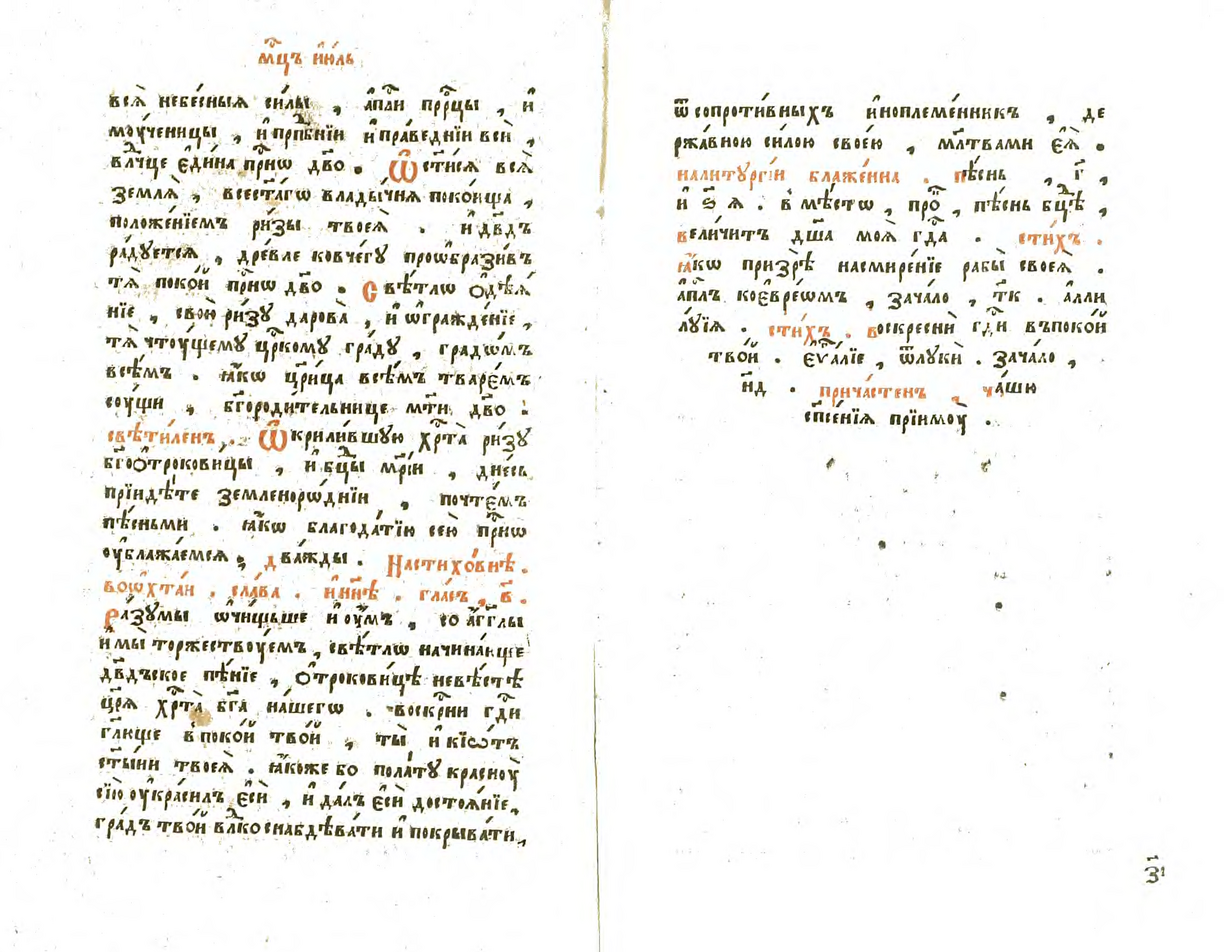 мц҃ъ ію́ль
всѧ̀ небе́сныѧ си́лы , а҆пⷭ҇ли прⷪ҇ро́цы , и҆
мꙋ́ченицы , и҆ прпⷣбнїи и҆ пра́веднїи всѝ ,
влⷣчце є҆ди́на при́снѡ дв҃о . Ѡ҆ст҃и́сѧ всѧ̀
землѧ̀ , всест҃а́гѡ влады́чнѧ поко́ища ,
положе́нїемъ ри́зы твоеѧ̀ . и҆ дв҃дъ
ра́дꙋетсѧ , дре́вле ковче́гꙋ проѡбрази́въ
тѧ̀ поко́й прⷭ҇нѡ дв҃о . Свѣ́тлѡ ѻ҆дѣѧ́
нїе , свою̀ ри́зꙋ дарова̀ , и҆ ѡ҆гражде́нїе ,
тѧ̀ чтꙋ́щемꙋ црⷭ҇комꙋ гра́дꙋ , градѡ́мъ
всѣ́мъ . ꙗ҆́кѡ цр҃и́ца всѣ́мъ тваре́мъ
сꙋ́щи , бг҃ороди́тельнице мт҃и дв҃о :
свѣти́ленъ . Ѿкрили́вшꙋю хрⷭ҇та̀ ри́зꙋ
бг҃оѻтрокови́цы , и҆ бцⷣы мр҃і́и , дне́сь
прїиди́те земленоро́днїи , почте́мъ
пѣ́сньми . ꙗ҆́кѡ благода́тїю сею̀ прⷭ҇нѡ
ᲂу҆блажа́емсѧ , два́жды . На стихо́внѣ .
во ѻ҆хта́и . сла́ва . и҆ нн҃ѣ . гла́съ , в҃ .
Ра́зꙋмы ѡ҆чи́щьше и҆ ᲂу҆́мъ , со а҆́гг҃лы
и҆ мы̀ торжествꙋ́емъ , свѣ́тлѡ начина́юще
дв҃дъское пѣ́нїе , ѻ҆трокови́цѣ невѣ́стѣ
цр҃ѧ̀ хрⷭ҇та̀ бг҃а на́шегѡ . воскрⷭ҇ни гдⷭ҇и
гл҃юще в поко́й тво́й , ты̀ и҆ кїѡ́тъ
ст҃ы́ни твоеѧ̀ . ꙗ҆́коже бо пола́тꙋ краснꙋ́
сїю̀ ᲂу҆кра́силъ є҆сѝ , и҆ да́лъ є҆сѝ достоѧ́нїе ,
гра́дъ тво́й влⷣко снабдѣва́ти и҆ покрыва́ти ,
ѿ сопроти́вныхъ и҆ноплеме́нникъ , де
ржа́вною си́лою своею̀ , мл҃твами є҆ѧ̀ .
на литꙋргі́и блаже́нна . пѣ́снь , г҃ ,
и҆ ѕ҃ ѧ . в мѣ́стѡ , прⷪ҇ , пѣ́снь бцⷣѣ ,
вели́читъ дш҃а моѧ̀ гдⷭ҇а . сти́хъ .
ꙗ҆́кѡ призрѣ̀ на смире́нїе рабы̀ своеѧ̀ .
а҆пⷭ҇лъ ко є҆вре́ѡмъ , зача́ло , т҃к . а҆лли
лꙋ́їѧ . сти́хъ . воскресни́ гдⷭ҇и въ поко́й
тво́й . є҆ѵⷢ҇а́лїе , ѿ лꙋкѝ . зача́ло ,
н҃д . прича́стенъ , ча́шю
сп҃се́нїѧ прїимꙋ̀ .
з҃і